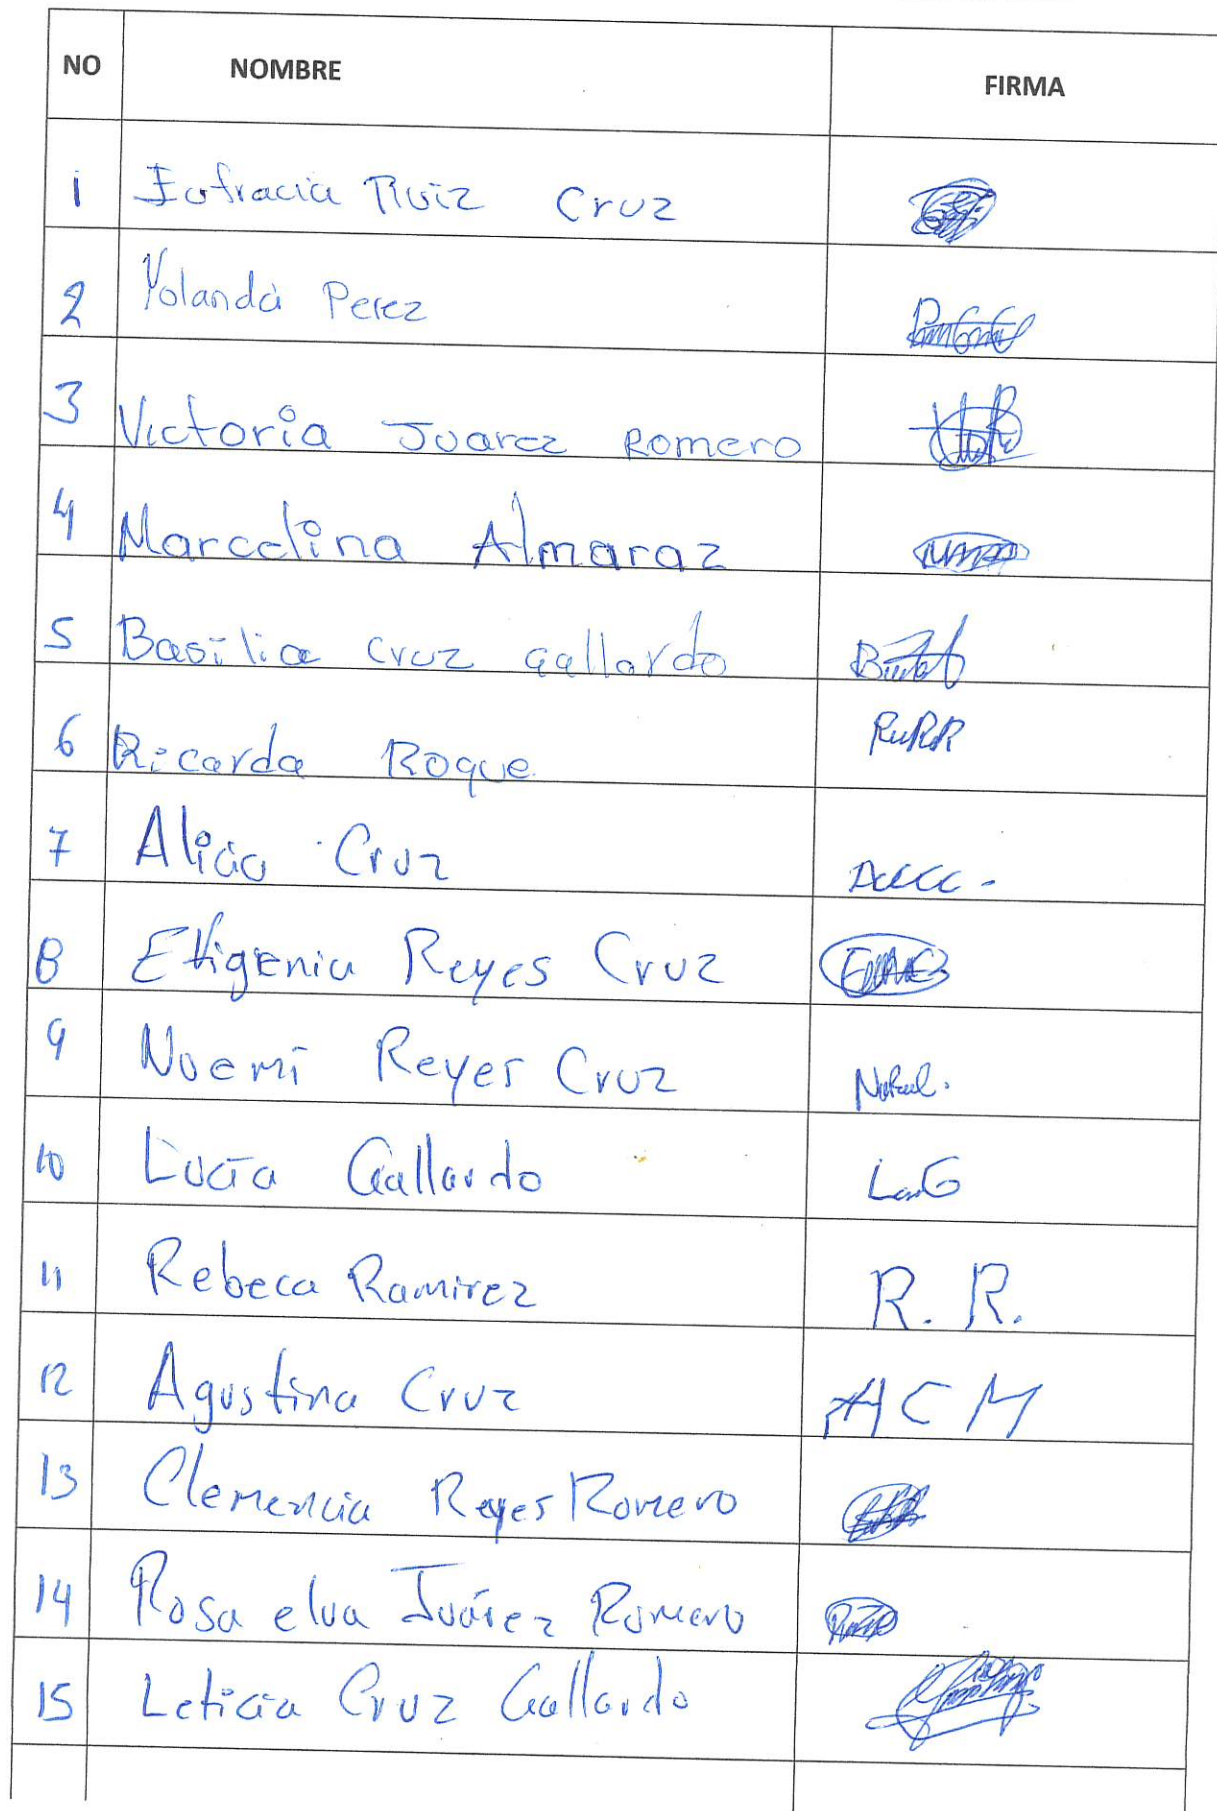 NO NOMBRE FIRMA
1 Eufracia Ruiz Cruz
2 Yolanda Perez
3 Victoria Juarez Romero
4 Marcelina Almaraz
5 Basilia Cruz Gallardo
6 Ricarda Roque RuRR
7 Alicia Cruz
8 Efigenia Reyes Cruz
9 Noemí Reyes Cruz
10 Lucía Gallardo
11 Rebeca Ramirez R. R.
12 Agustina Cruz ACM
13 Clemencia Reyes Romero
14 Rosa elva Juárez Romero
15 Leticia Cruz Gallardo